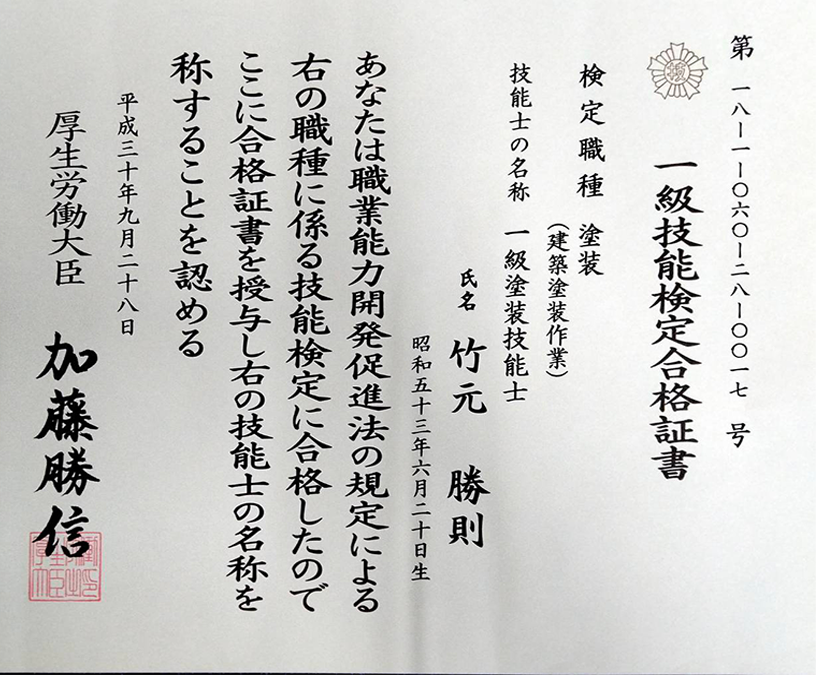 第 一八ー一ー〇六〇ー二八ー〇〇一七 号
一級技能検定合格証書
検定職種 塗装
(建築塗装作業)
技能士の名称 一級塗装技能士
氏名 竹元 勝則
昭和五十三年六月二十日生
あなたは職業能力開発促進法の規定による
右の職種に係る技能検定に合格したので
ここに合格証書を授与し右の技能士の名称を
称することを認める
平成三十年九月二十八日
厚生労働大臣 加藤勝信